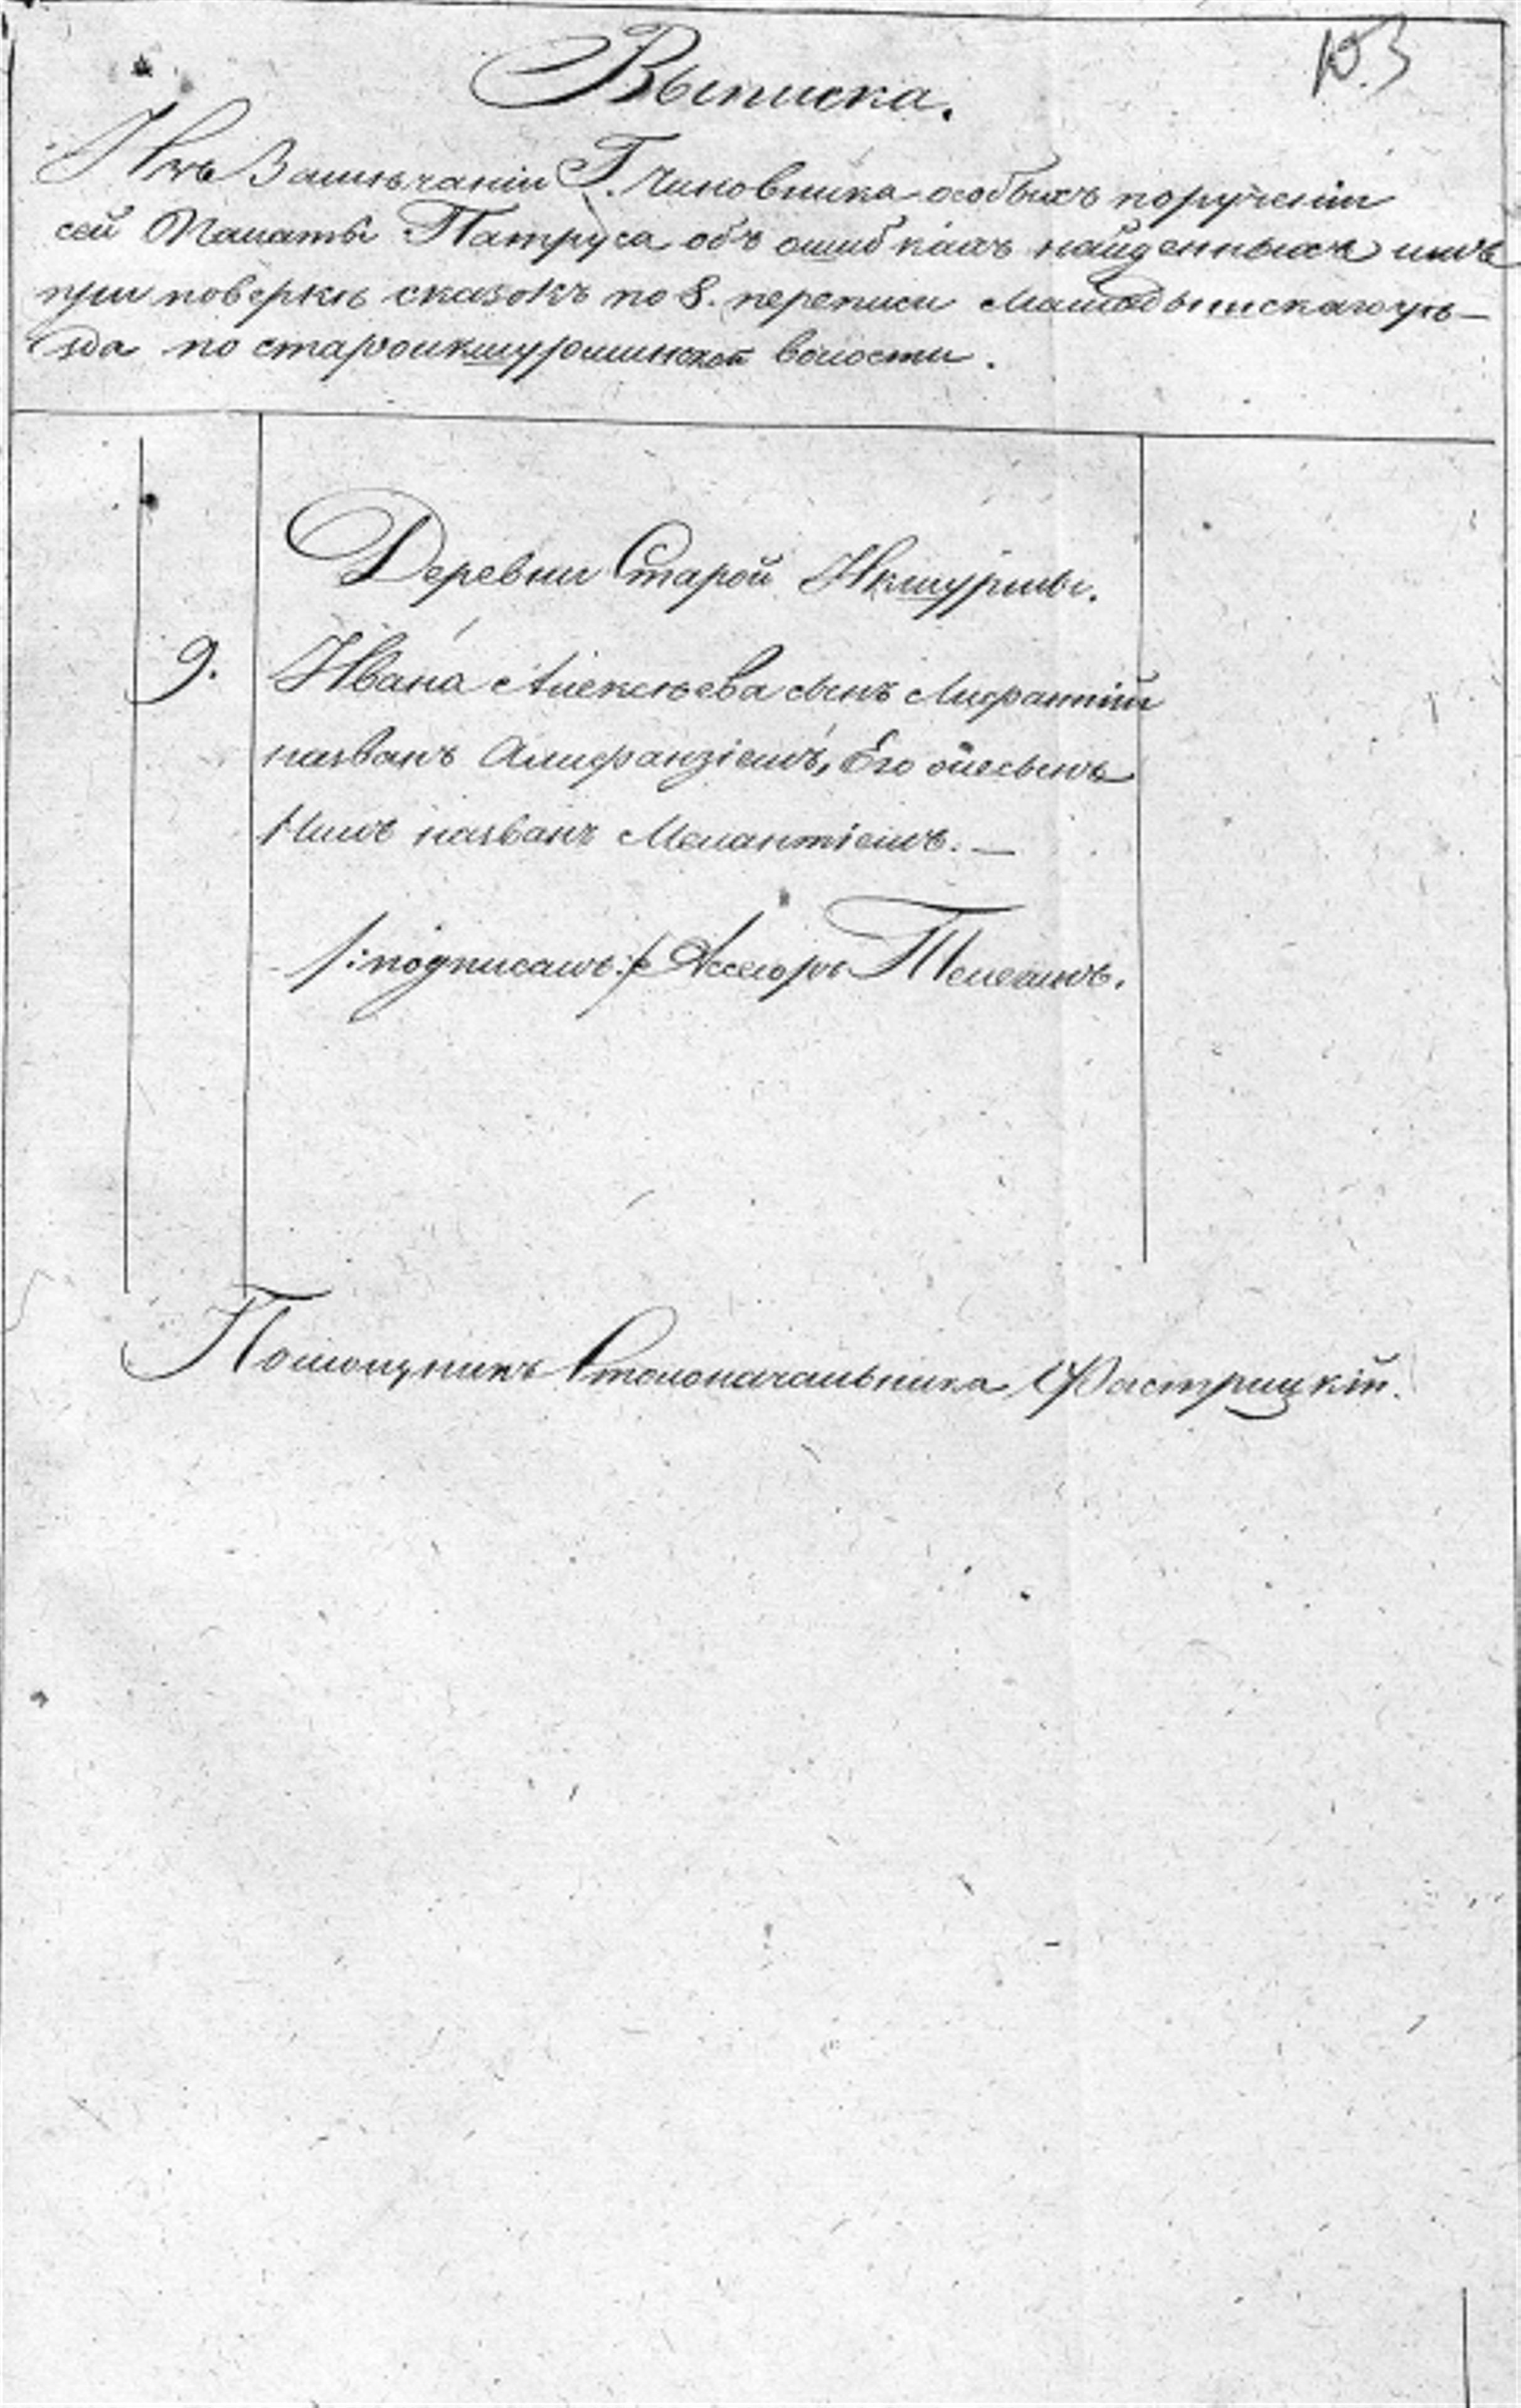 Выписка.
Изъ Замѣчаніи Г. Чиновника особыхъ порученіи
сей Палаты Патруса объ ошибкахъ найденныхъ имъ
при повѣркѣ сказокъ по 8. переписи Малмыжскаго уѣ-
зда по староикшурминской волости.
Деревни Старой Икшурмы.
9. Ивана Алексѣева сынъ
названъ Его сынъ
названъ Мелантіемъ. —
/:подписалъ:/ Ассесоръ
Помощникъ Столоначальника Фастрицкій.